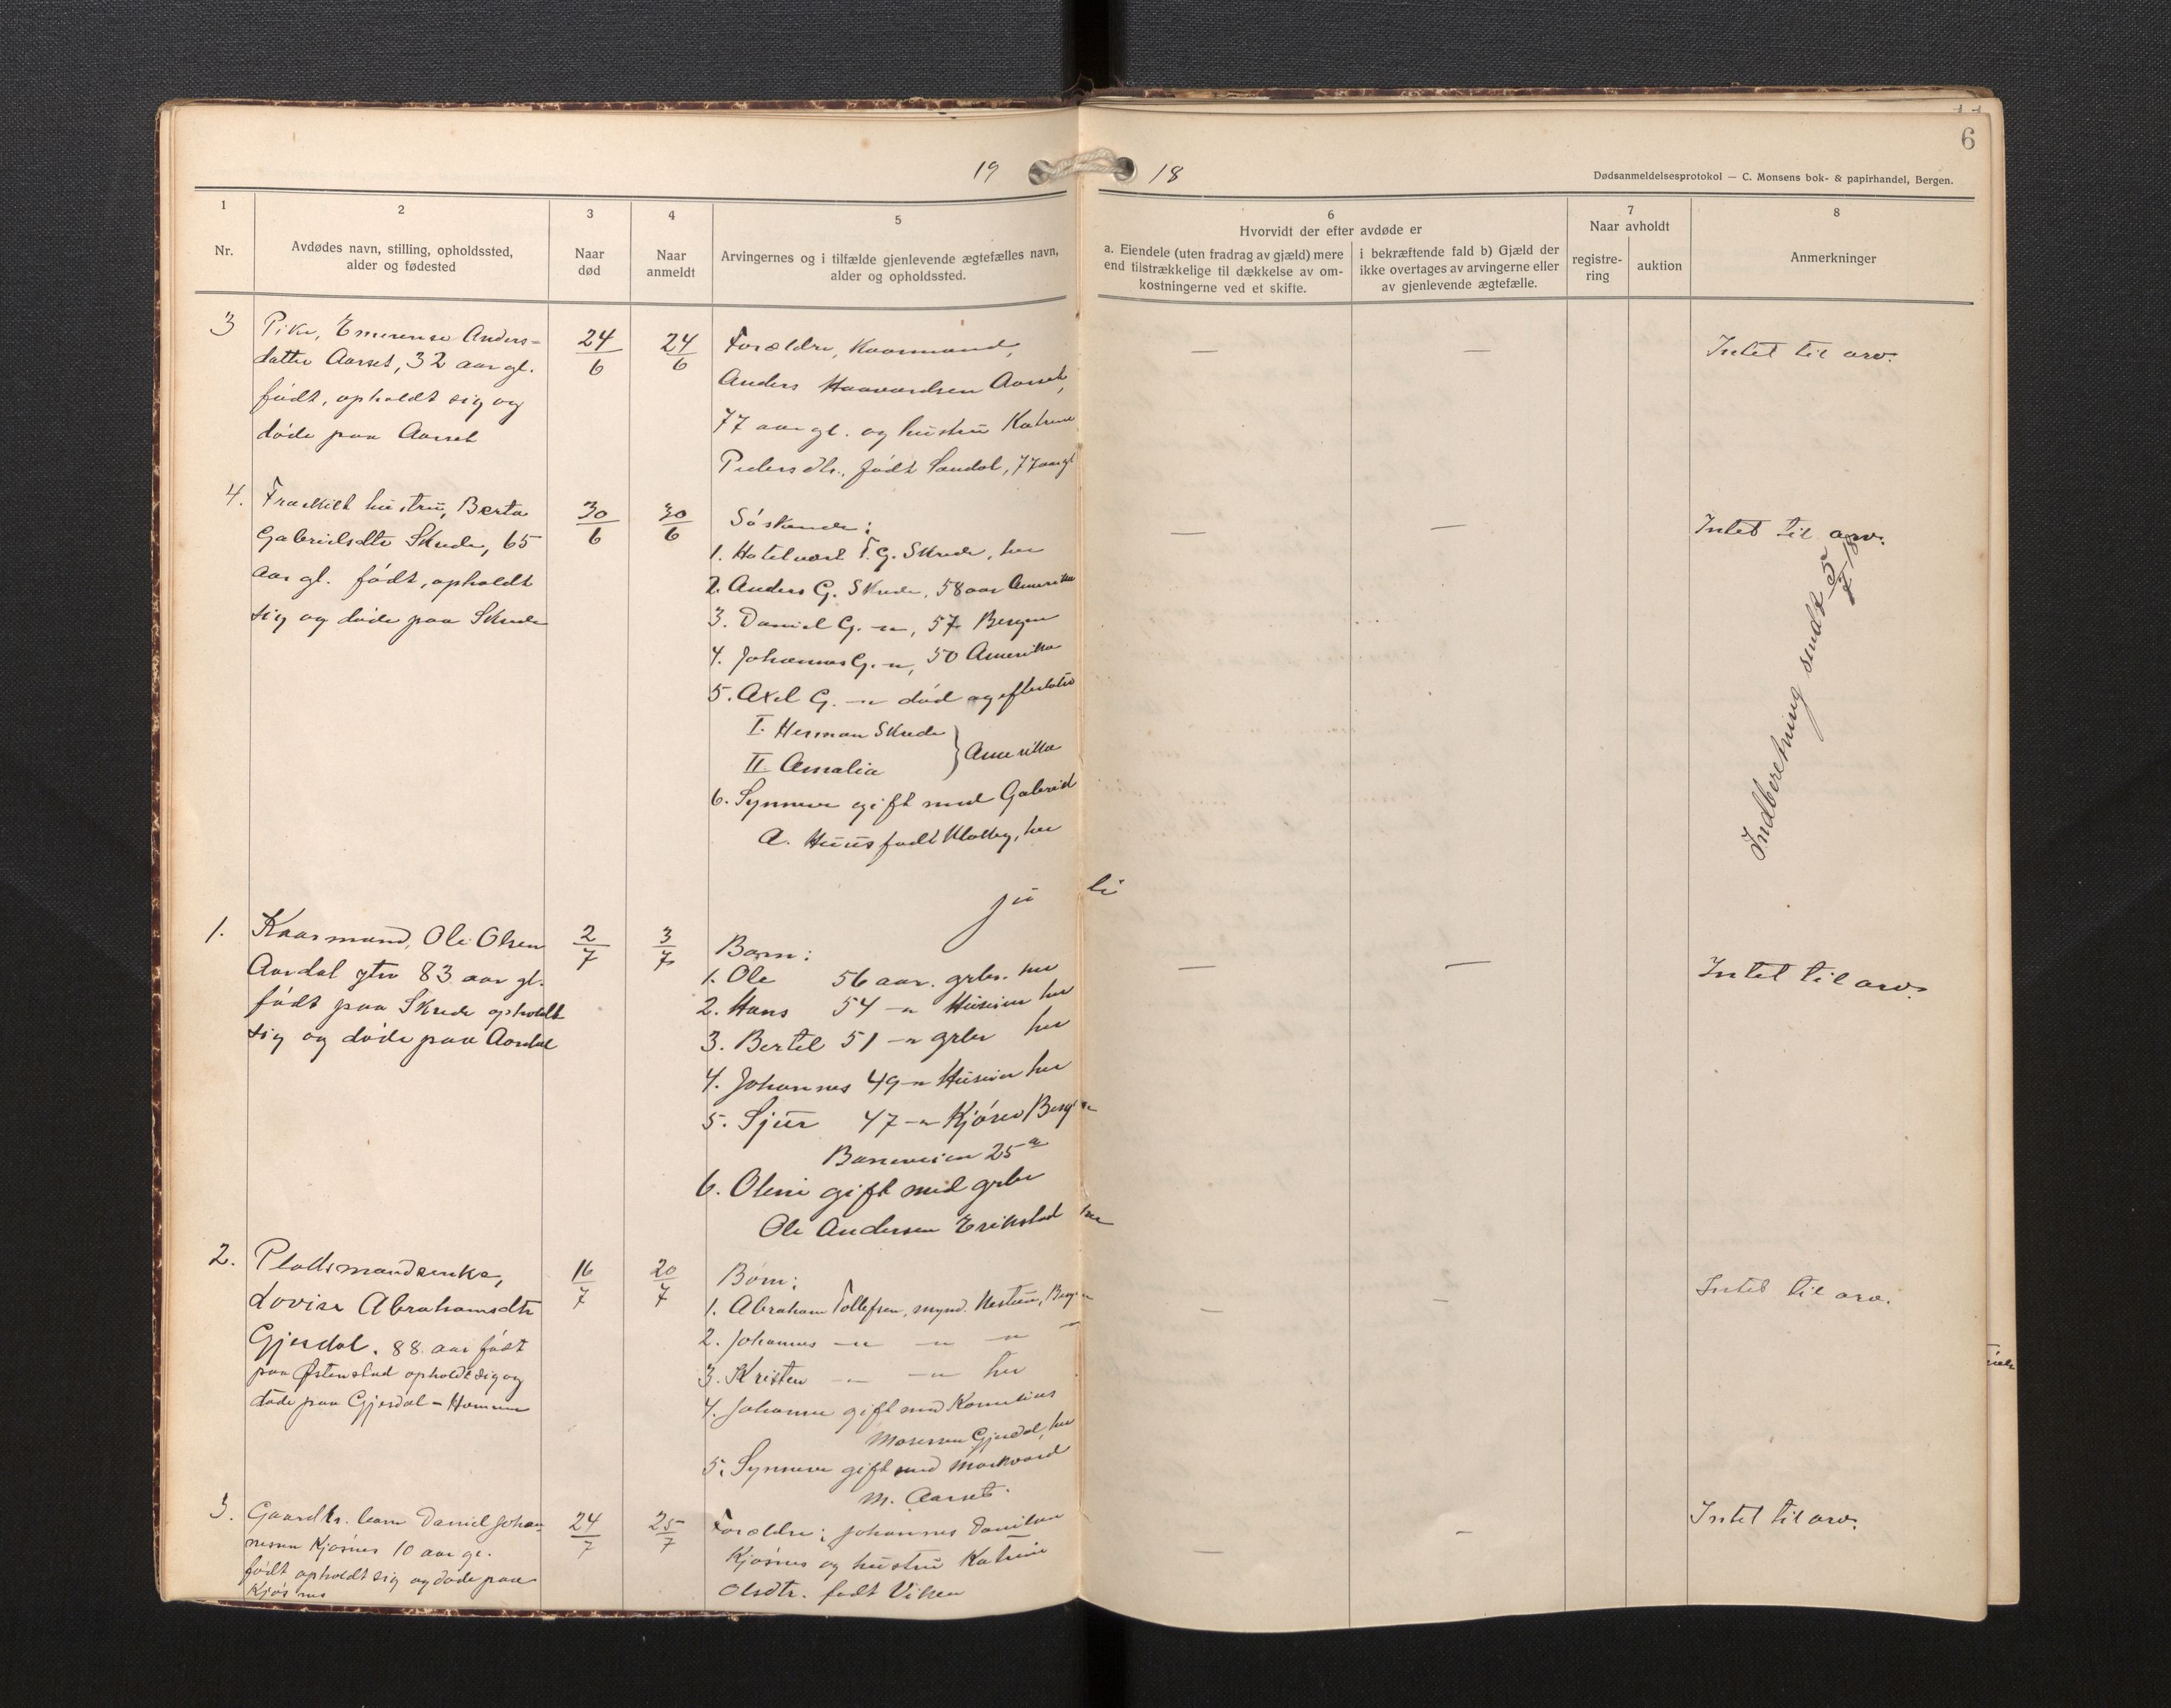 6
19 18
Dødsanmeldelsesprotokol — C. Monsens bok- & papirhandel, Bergen.
1
Nr.
2
Avdødes navn, stilling, opholdssted,
alder og fødested
3
Naar
død
4
Naar
anmeldt
5
Arvingernes og i tilfælde gjenlevende ægtefælles navn,
alder og opholdssted.
6
Hvorvidt der efter avdøde er
a. Eiendele (uten fradrag av gjæld) mere
end tilstrækkelige til dækkelse av om-
kostningerne ved et skifte.
i bekræftende fald b) Gjæld der
ikke overtages av arvingerne eller
av gjenlevende ægtefælle.
7
Naar avholdt
registre-
ring
auktion
8
Anmerkninger
3
Pike, Emerense Anders-
datter Aarset, 32 aar gl.
født, opholdt sig og
døde paa Aarset
24/6
24/6
Forældre, Kaarmand,
Anders Haavardsen Aarset,
77 aar gl. og hustru Katrine
Pedersdtr., født Sandal, 77 aar gl
— —
Intet til arv.
4.
Fraskilt hustru, Berta
Gabrielsdtr Skrede, 65
aar gl. født, opholdt
sig og døde paa Skrede
30/6
30/6
Søskende:
1. Hotelvært T. G. Skrede, her
2. Anders G. Skrede, 58 aar Amerika
3. Daniel G. —"—, 57 Bergen
4. Johannes G. —"—, 50 Amerika
5. Axel G. —"— død og efterlatt
I. Herman Skrede
II. Amalia } Amerika
6. Synneve gift med Gabriel
A. Huus født Kløtteg, her
— —
Intet til arv.
Indberetning sendt 5/7 18
Juli
1.
Kaarmand, Ole Olsen
Aardal gtn 83 aar gl.
født paa Skrede opholdt
sig og døde paa Aardal
2/7
3/7
Barn:
1. Ole 56 aar. grbr. her
2. Hans 54 —"— Huseier her
3. Bertel 51 —"— grbr her
4. Johannes 49 —"— Huseier her
5. Sjur 47 —"— Kjører Bergen
Baneveien 25 a
6. Oline gift med grbr
Ole Andersen Erikstad her
— —
Intet til arv.
2.
Pladsmandsenke,
Lovise Abrahamsdtr
Gjerdal. 88 aar født
paa Østenstad opholdt sig og
døde paa Gjerdal - Hommen
16/7
20/7
Børn:
1. Abraham Tollefsen, mynd. Nestun, Bergen
2. Johannes —"— —"— —"—
3. Kristen —"— —"— her
4. Johanne gift med Kornelius
Mosessen Gjerdal, her
5. Synneve gift med Markvard
M. Aarset.
— —
Intet til arv.
3.
Gaardbr. barn Daniel Johan-
nessen Kjøsnes 10 aar gl.
født opholdt sig og døde paa
Kjøsnes
24/7
25/7
Forældre: Johannes Danielsen
Kjøsnes og hustru Katrine
Olsdtr. født Viken
— —
Intet til arv.